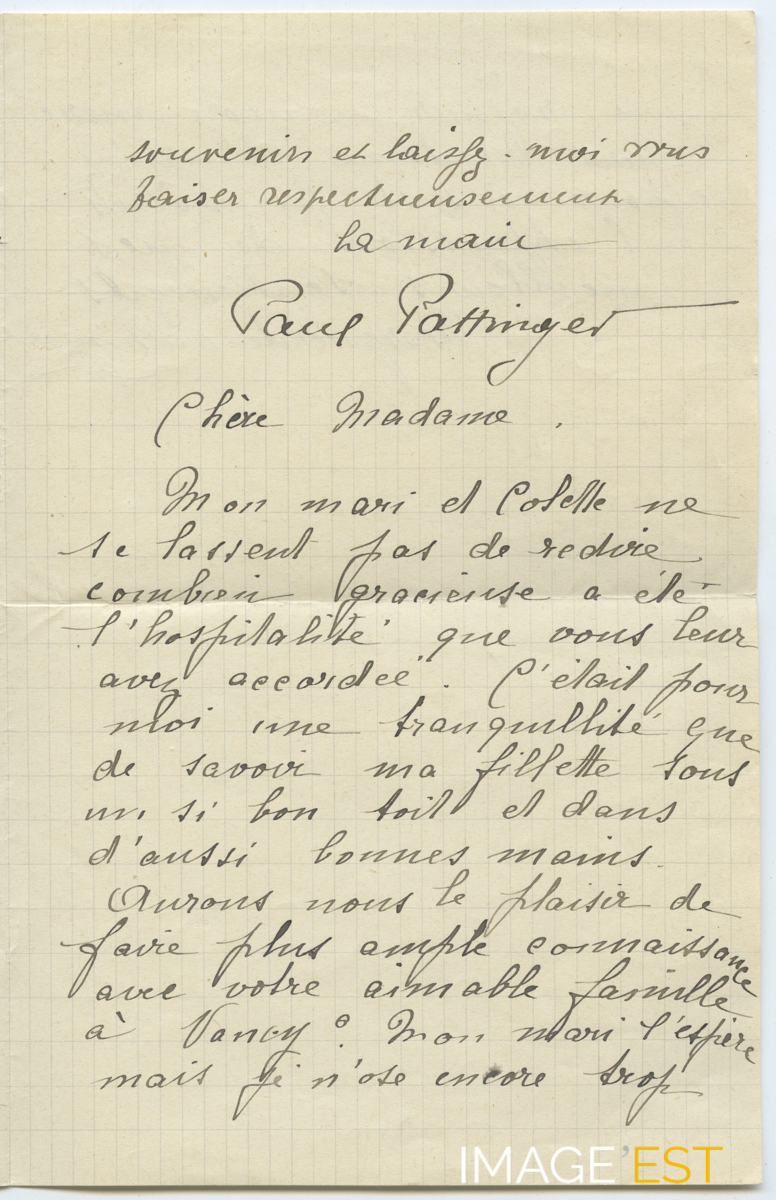 souvenirs et laissez-moi vous
baiser respectueusement
la main
Paul Pattinger
Chère Madame.
Mon mari et Colette ne
se lassent pas de redire
combien gracieuse a été
l'hospitalité que vous leur
avez accordée. C'était pour
moi une tranquillité que
de savoir ma fillette sous
un si bon toit et dans
d'aussi bonnes mains.
Aurons nous le plaisir de
faire plus ample connaissance
avec votre aimable famille
à Nancy? Mon mari l'espère
mais je n'ose encore trop
IMAGE'EST